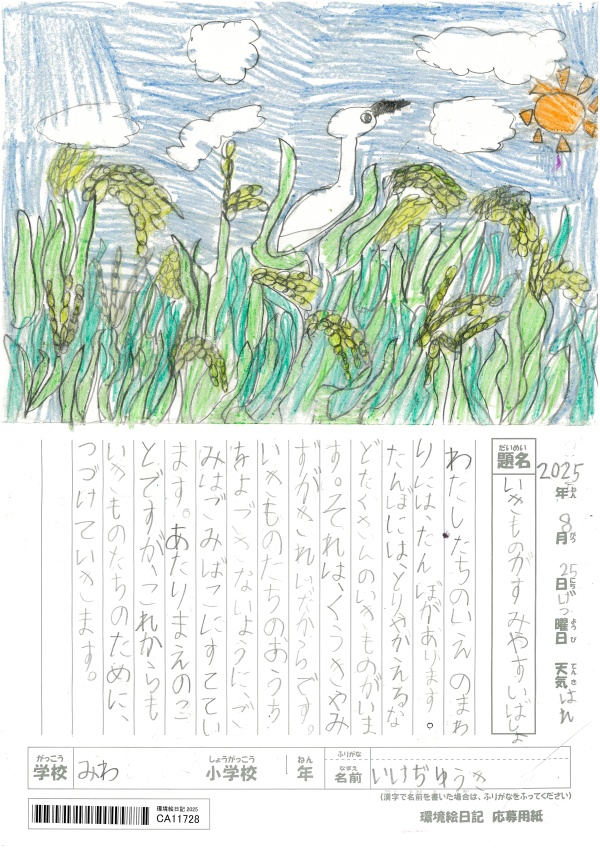 2025年8月25日げつ曜日 天気はれ
ねん がつ にち ようび てんき
だいめい
題名
いきものがすみやすいばしょ
わたしたちのいえのまわ
りには、たんぼがあります。
たんぼには、とりやかえるな
どたくさんのいきものがいま
す。それは、くうきやみ
ずがきれいだからです。
いきものたちのおうち
をよごさないように、ご
みはごみばこにすててい
ます。あたりまえのこ
とですが、これからも
いきものたちのために、
つづけていきます。
がっこう
学校 みわ
しょうがっこう
小学校
ねん
1年
ふりがな
なまえ
名前 いけぢゆうき
(漢字で名前を書いた場合は、ふりがなをふってください)
環境絵日記 2025
CA11728
環境絵日記 応募用紙